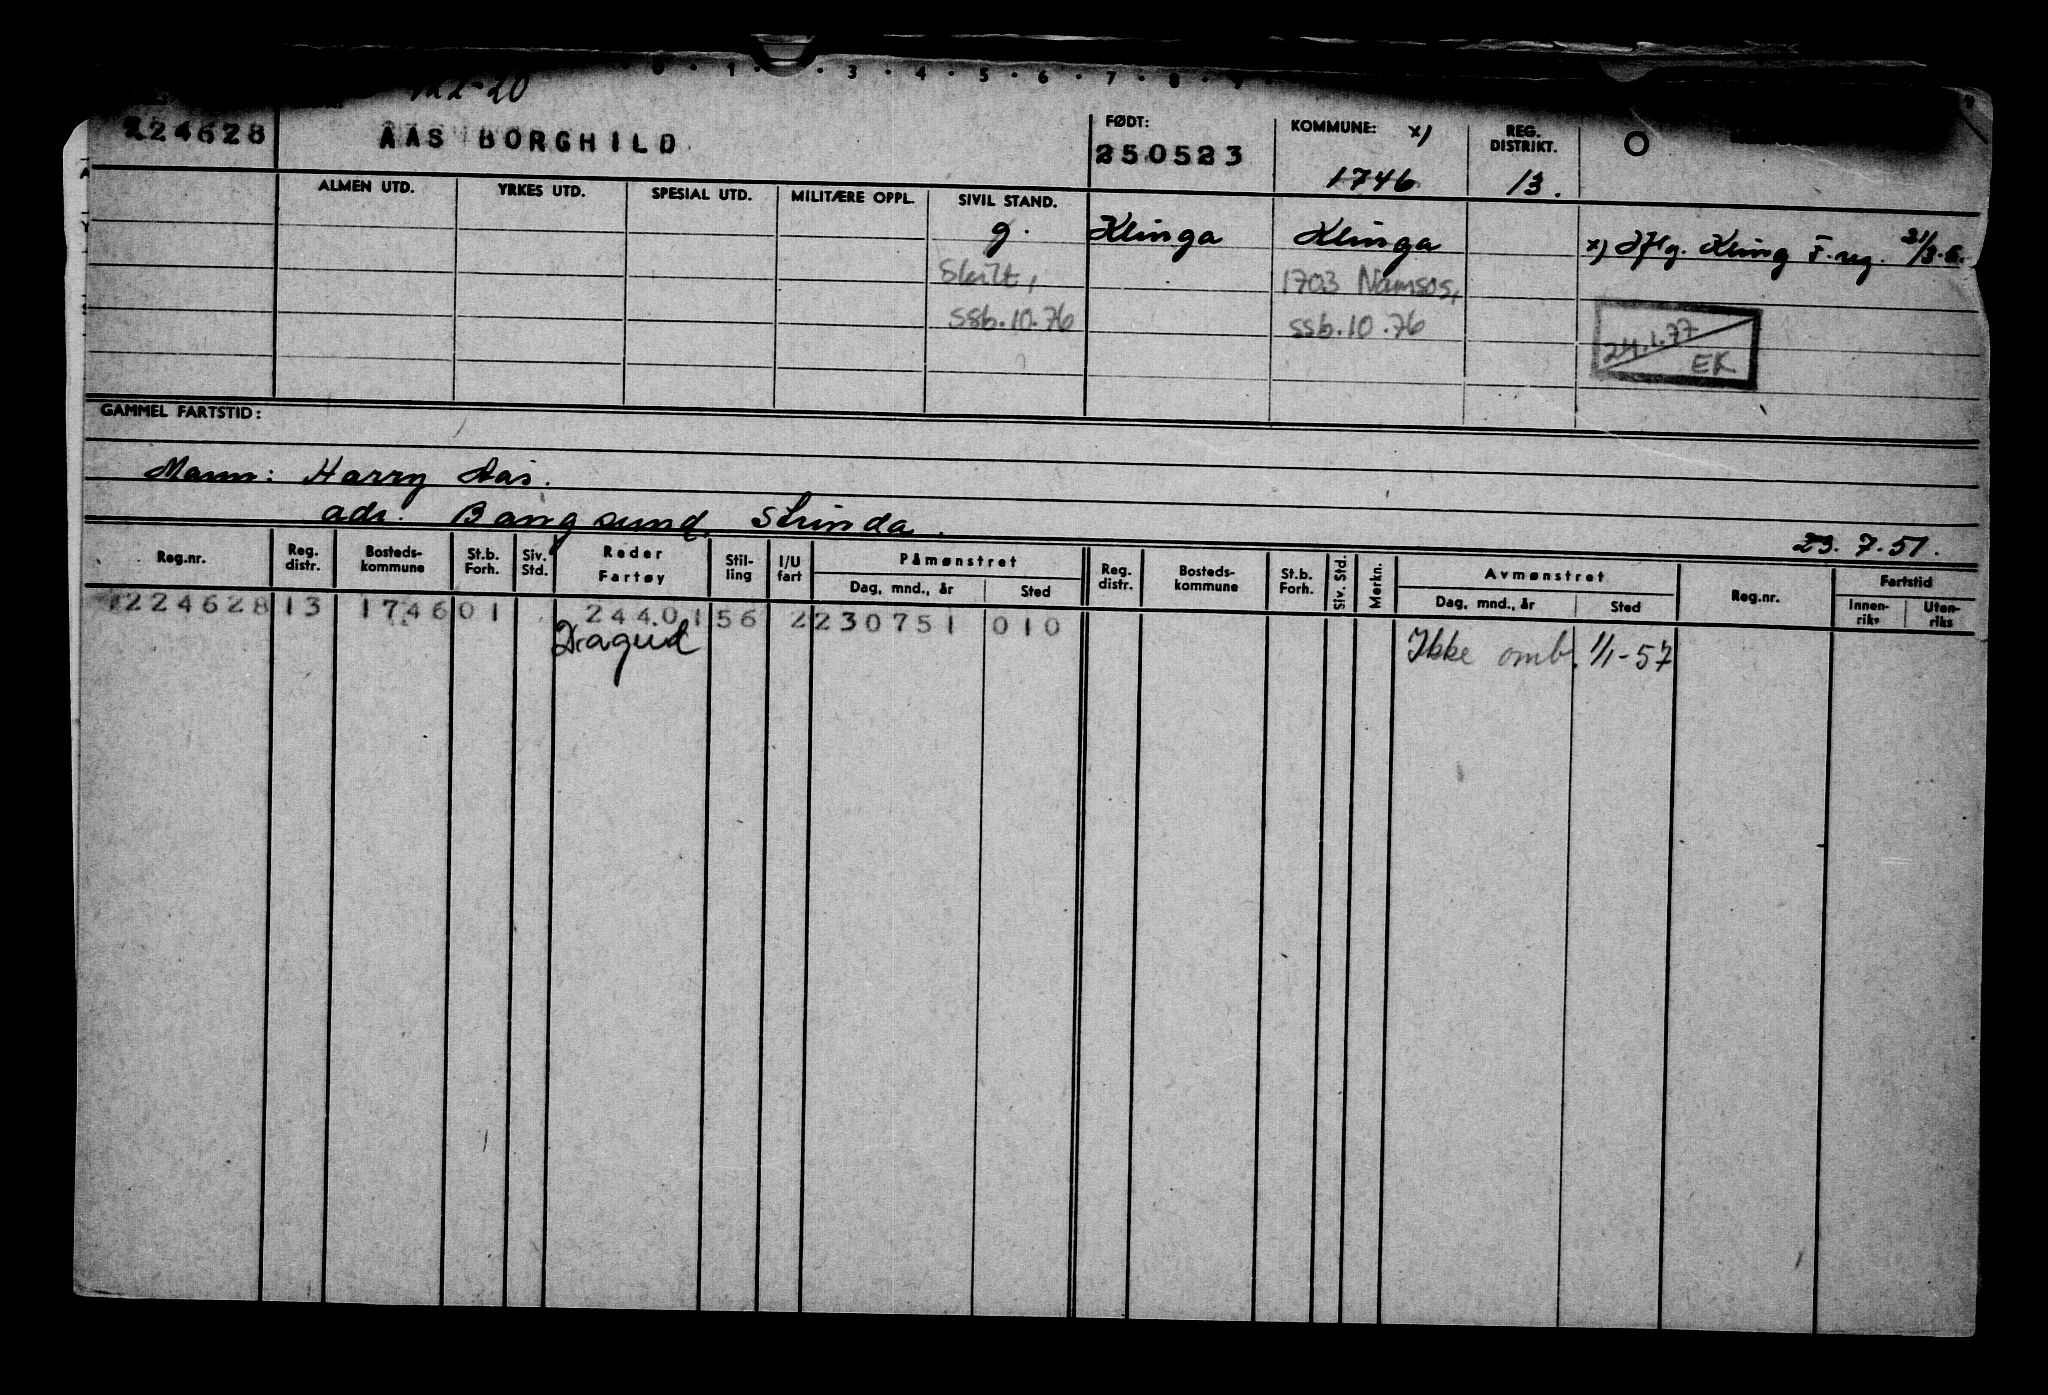 122-20
0 . 1 . . 3 . 4 . 5 . 6 . 7 . 8 . 9
224628 AAS BORGHILD FØDT: 250523 KOMMUNE: x) 1746 REG. DISTRIKT. 13.
ALMEN UTD. YRKES UTD. SPESIAL UTD. MILITÆRE OPPL. SIVIL STAND.
g. Klinga Klinga x) Kling F.reg.
Skilt, 1703 Namsos,
ssb.10.76 ssb.10.76
24.1.77
EK
GAMMEL FARTSTID:
Mann: Harry Aas.
adr. Bangsund, Strinda.
23.7.51.
Reg.nr. Reg. distr. Bosteds-kommune St.b. Forh. Siv. Std. Reder Fartøy Stil-ling I/U fart Påmønstret Dag, mnd., år Sted Reg. distr. Bosteds-kommune St.b. Forh. Siv. Std. Merkn. Avmønstret Dag, mnd., år Sted Reg.nr. Fartstid Innen-riks Uten-riks
224628 13 1746 01 24401 56 2 230751 010
Dragud Ikke omb. 1/1-57